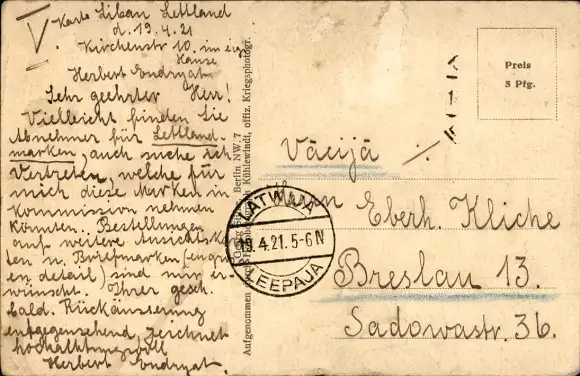 V. Karte Liban Lettland
d. 19.4.21
Kirchenstr 10. im eig.
Hause
Herbert Endryat
Sehr geehrter Herr!
Vielleicht finden Sie
Abnehmer für Lettland-
marken, auch suche ich
Vertreter, welche für
mich diese Marken in
Kommission nehmen
könnten. Bestellungen
auf weitere Ansichtskar
ten u. Briefmarken (engros
en detail) sind mir er-
wünscht. Ihrer gesch.
bald. Rückäusserung
entgegensehend, zeichnet
hochachtungsvoll
Herbert Endryat.
Berlin NW. 7
Aufgenommen Kühlewindt, offiz. Kriegsphotogr.
LATWIJA
19.4.21.5-6N
LEEPAJA
Preis
5 Pfg.
Vācijā
Herrn Eberh. Kliche
Breslau 13.
Sadowastr. 36.